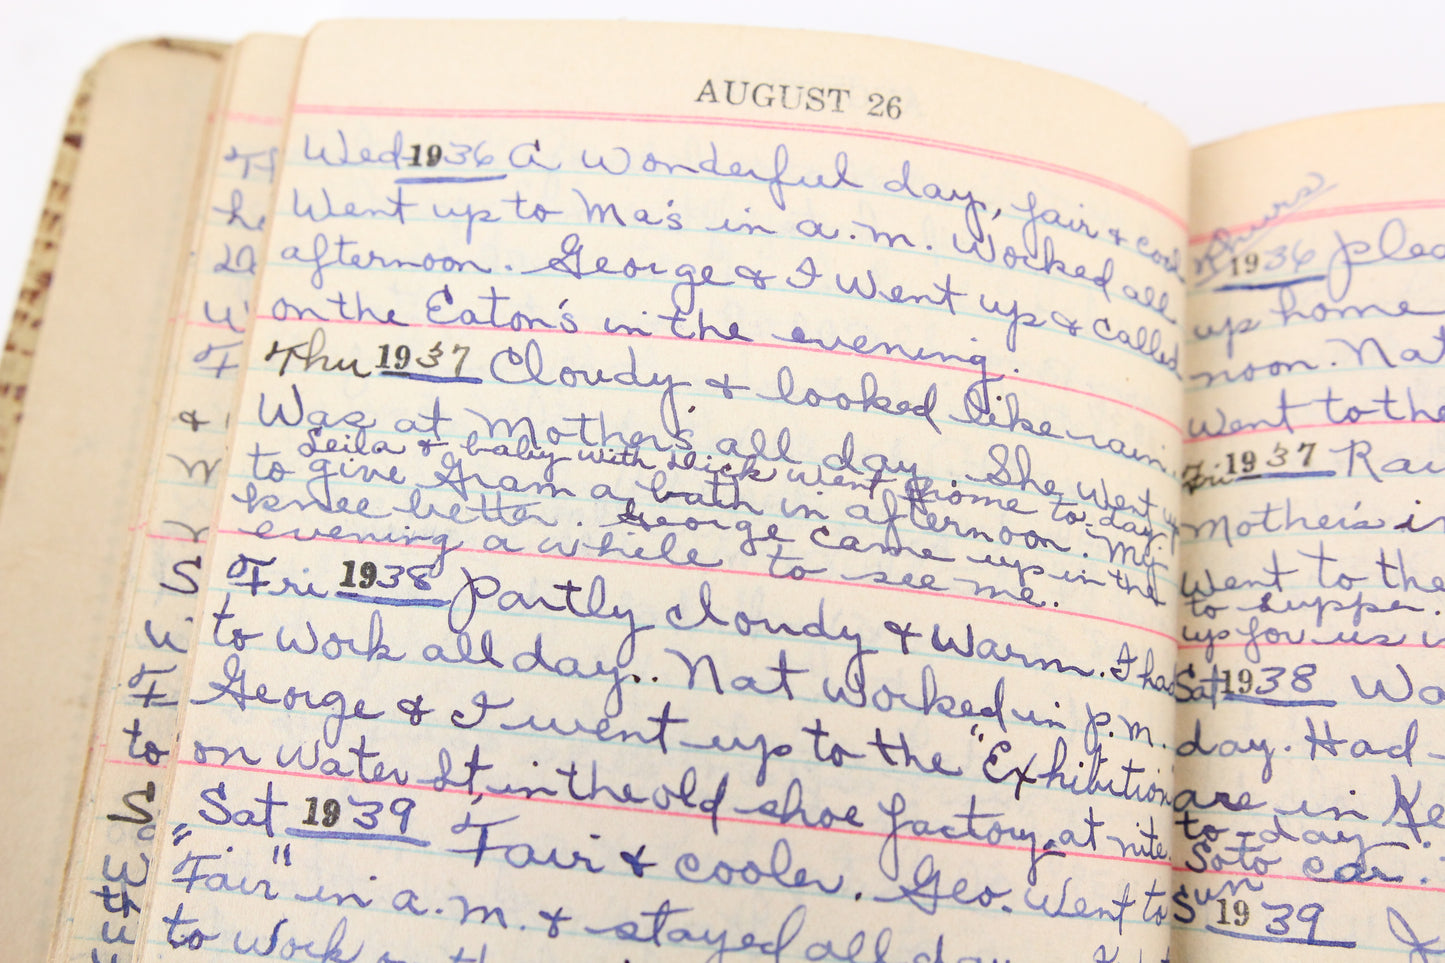 AUGUST 26
Wed 1936 A wonderful day, fair & cool
Went up to Ma's in a.m. Worked all
afternoon. George & I went up & called
on the Eaton's in the evening.
Thu 1937 Cloudy & looked like rain.
Was at Mother's all day. She went up
Leila & baby with Dick went home to-day.
to give Gram a bath in afternoon. My
knee better. George came up in the
evening a while to see me.
Fri 1938 Partly cloudy & warm. I had
to work all day.. Nat worked in p.m.
George & I went up to the "Exhibition
on Water St, in the old shoe factory at nite.
Sat 1939 Fair & cooler. Geo. went to
"Fair" in a.m. & stayed all day.
to work
1936
up home
noon. Nat
went to the
Fri 1937
Mother's in
Went to the
to supper.
up for us
Sat 1938
day. Had
are in
to-day
So to car.
Sun 1939